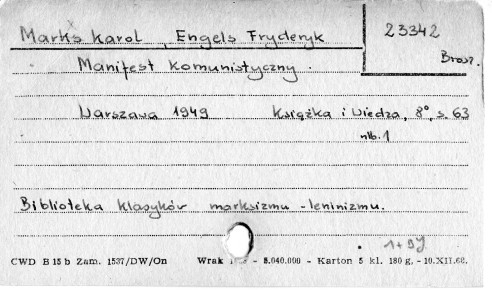 Marks Karol, Engels Fryderyk 23342
Brosz.
Manifest komunistyczny.
Warszawa 1949 Książka i Wiedza, 8°, s. 63
nlb. 1
Biblioteka klasyków marksizmu-leninizmu.
1+9J
CWD B 15 b Zam. 1537/DW/On Wrak - 8.040.000 - Karton 5 kl. 180 g. - 10.XII.60.